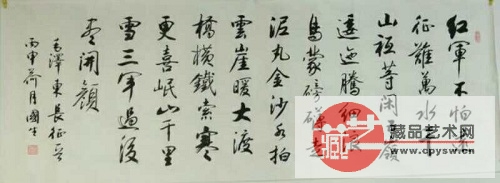 紅軍不怕遠
征難萬水千
山祗等闲五嶺
逶迤腾细浪
烏蒙磅礴走
泥丸金沙水拍
雲崖暖大渡
橋橫鐵索寒
更喜岷山千里
雪三军過後
尽開顔
毛澤東長征詩
丙申荷月國
藏品艺术网